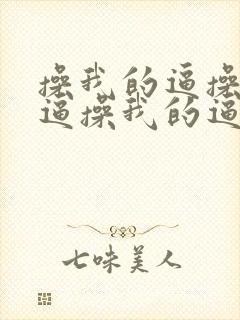 操我的逼操
逼操我的逼
七味美人